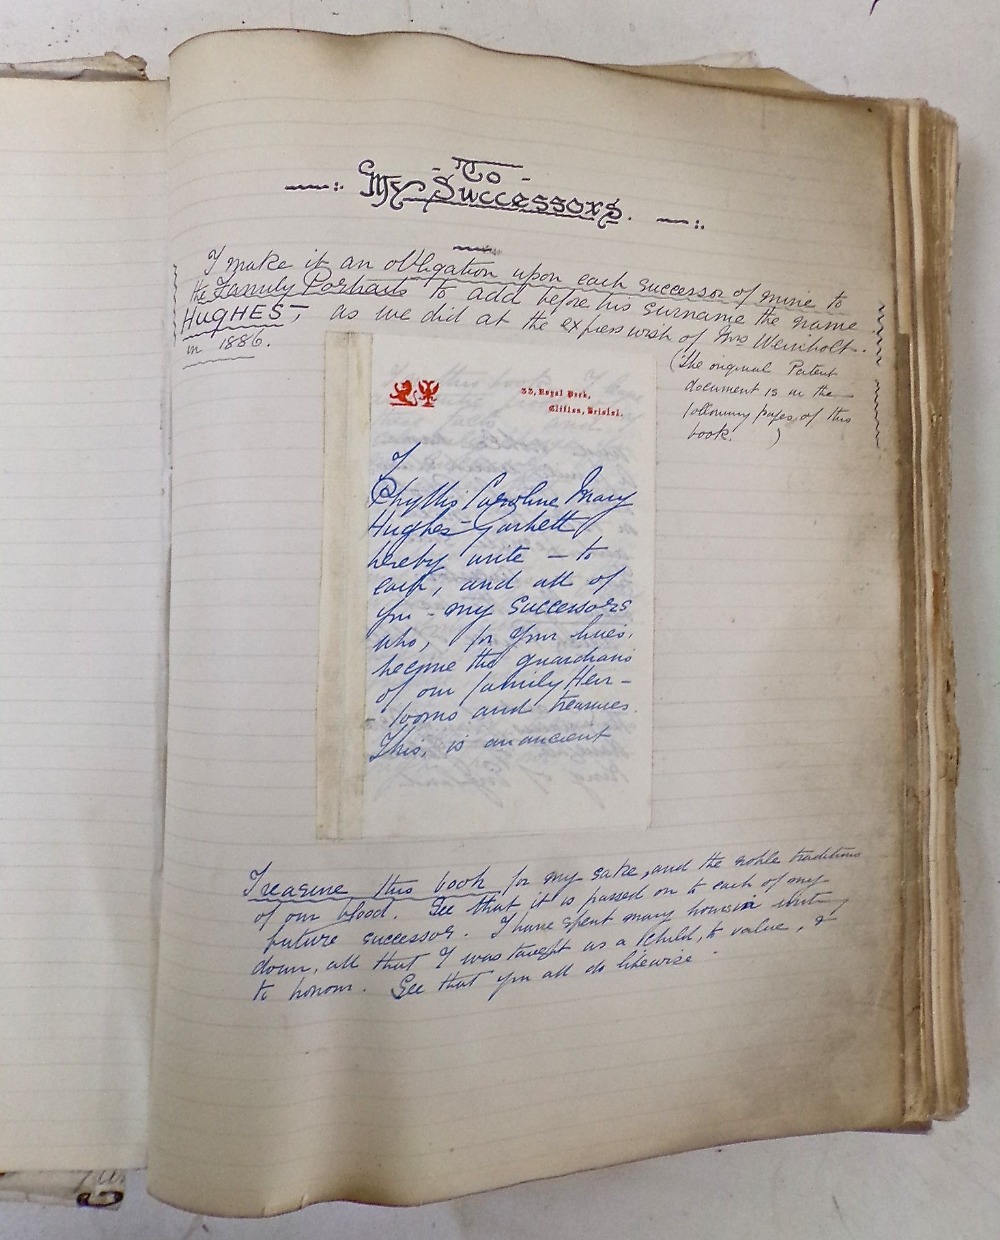 - To -
My Successors.
I make it an obligation upon each successor of mine to
the Family Portraits to add before his Surname the name
HUGHES, as we did at the express wish of Mrs Weinholt.
in 1886.
(The original Patent
document is in the
following pages of this
book. )
33, Royal Park,
Clifton, Bristol.
I
Phyllis Caroline Mary
Hughes-Garbett
hereby write - to
each, and all of
you - my Successors
who, for your lives,
become the guardians
of our family Heir-
looms and treasures.
This, is an ancient
Treasure this book for my sake, and the noble traditions
of our blood. See that it is passed on to each of my
future successors. I have spent many hours in writing
down, all that I was taught as a child, to value, &
to honour. See that you all do likewise.